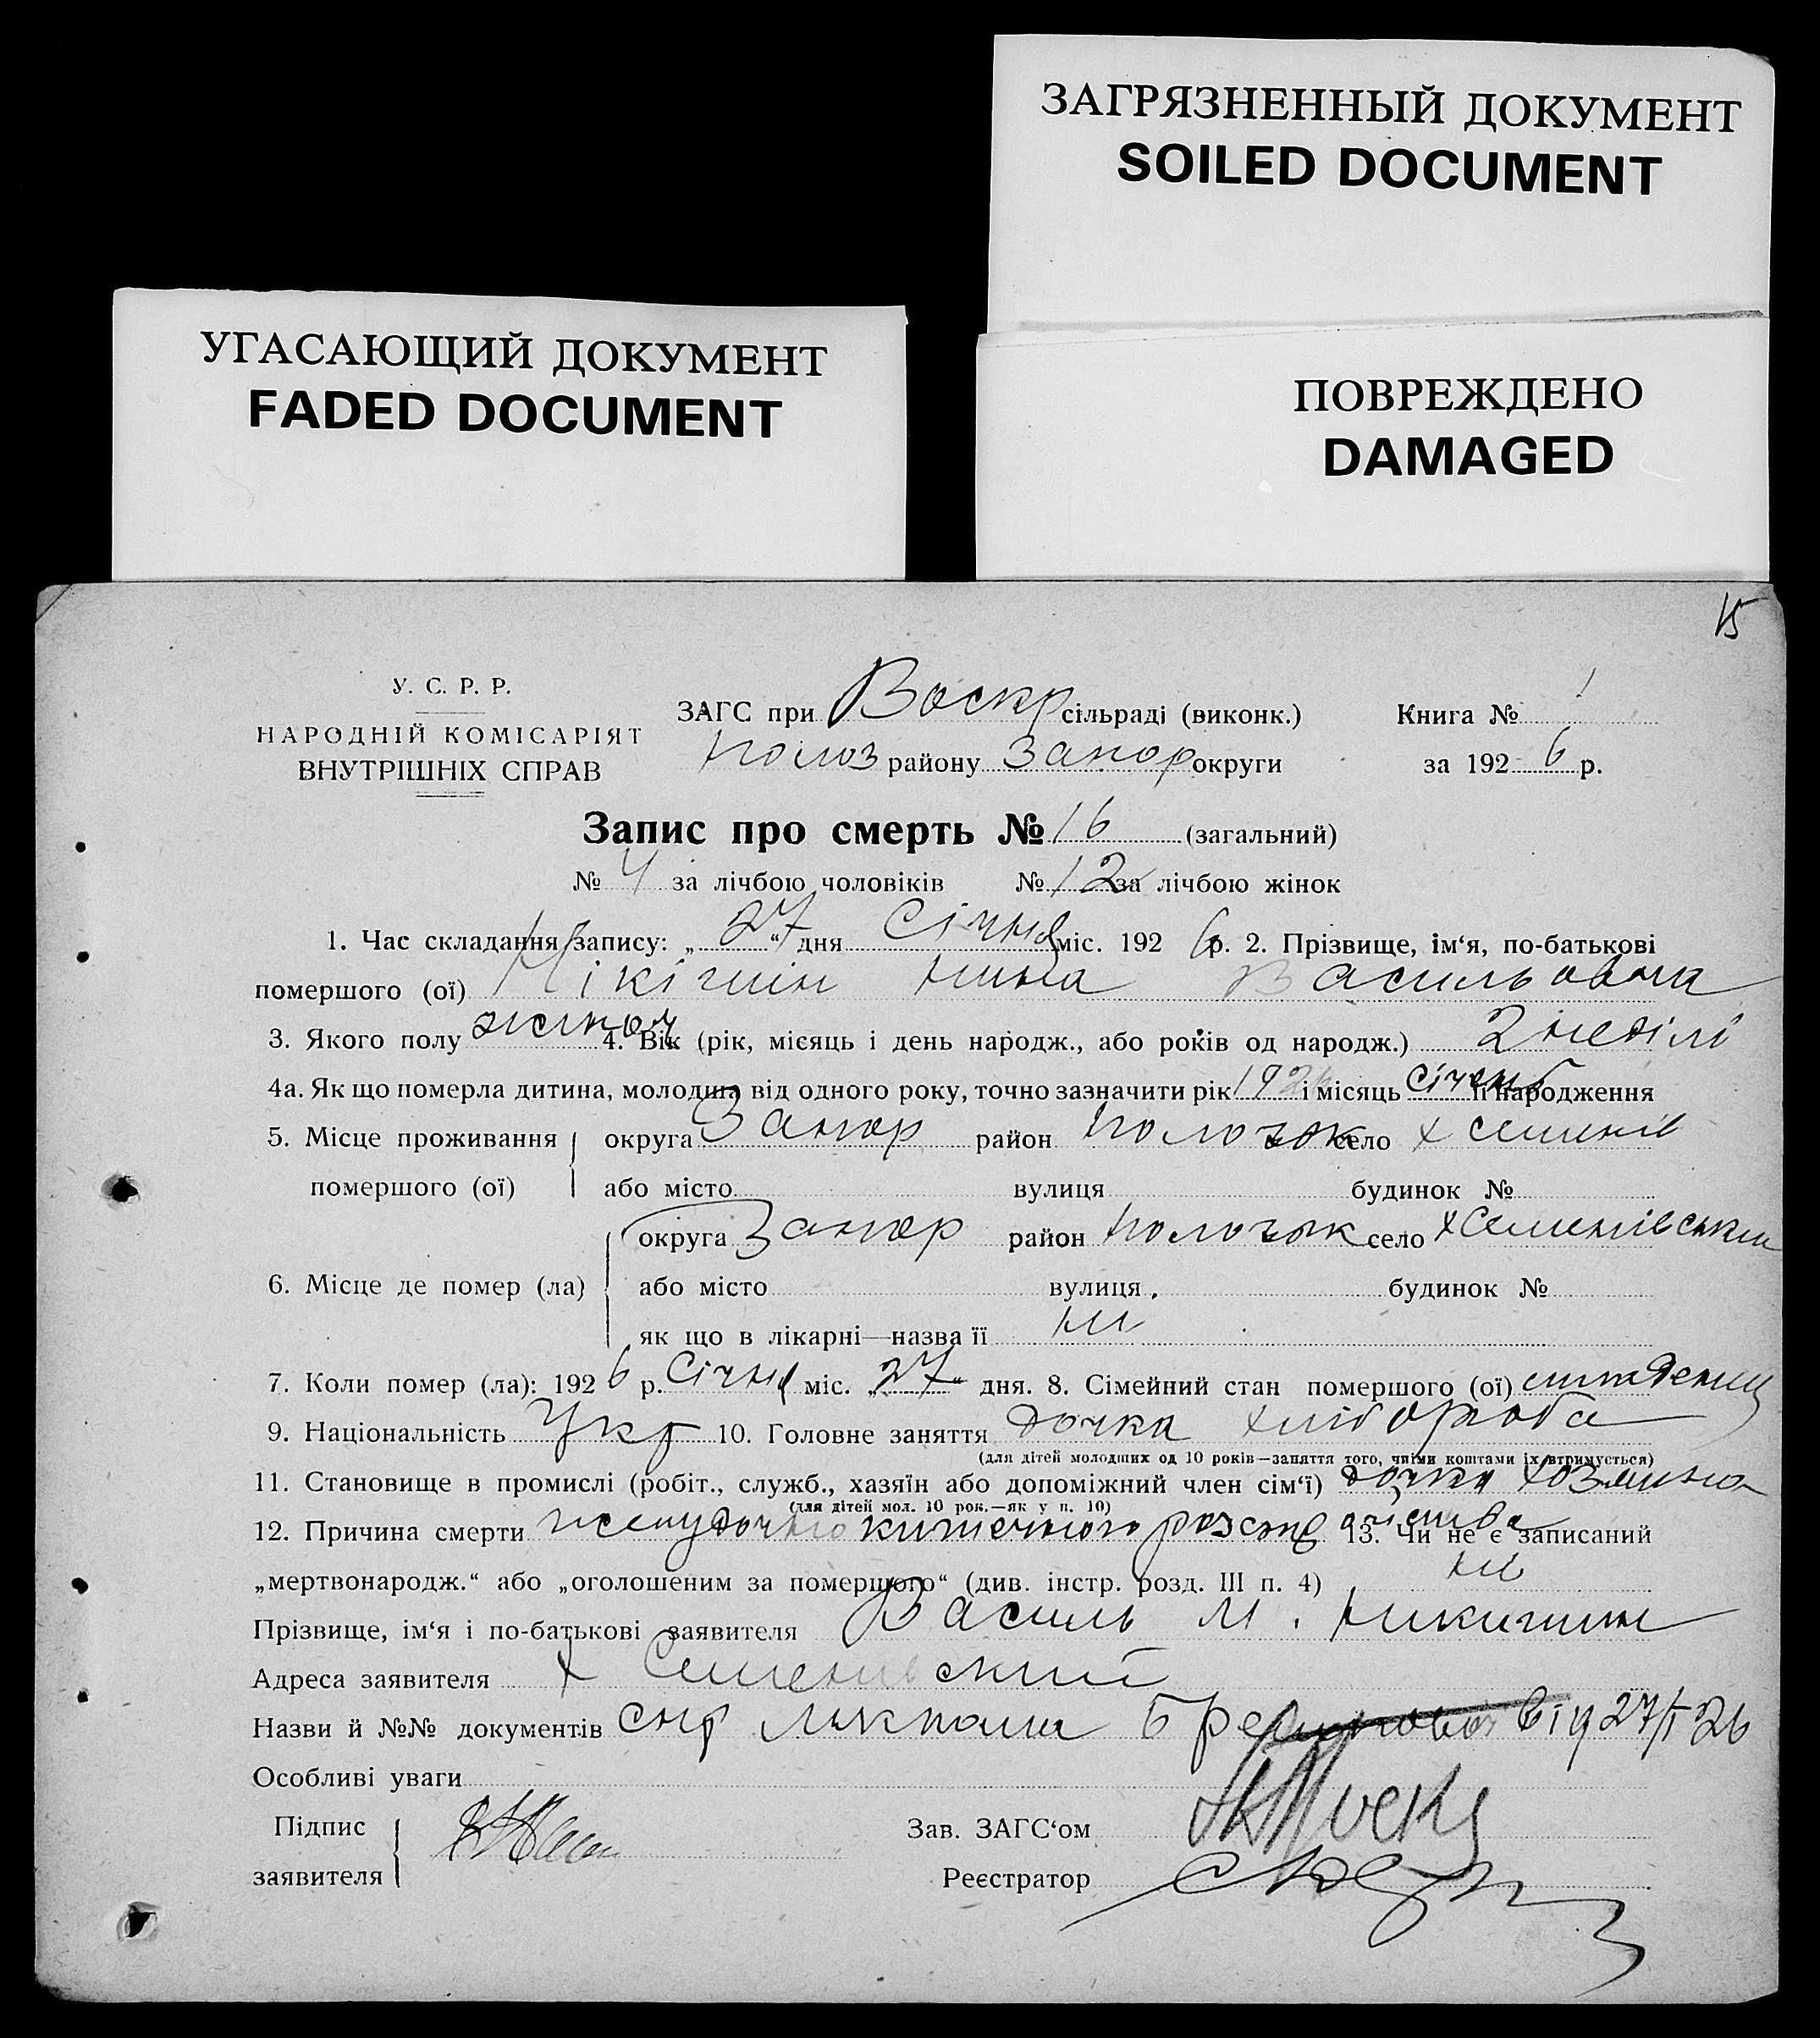 ЗАГРЯЗНЕННЫЙ ДОКУМЕНТ
SOILED DOCUMENT
УГАСАЮЩИЙ ДОКУМЕНТ
FADED DOCUMENT
ПОВРЕЖДЕНО
DAMAGED
15
У. С. Р. Р.
НАРОДНІЙ КОМІСАРІЯТ
ВНУТРІШНІХ СПРАВ
ЗАГС при Воскр сільраді (виконк.)
Полоз району Запор округи
Книга № 1
за 1926 р.
Запис про смерть № 16 (загальний)
№ 4 за лічбою чоловіків № 12 за лічбою жінок
1. Час складання запису: „27“ дня Січня міс. 1926 р. 2. Прізвище, ім‘я, по-батькові
помершого (ої) Нікігшін Нина Васильовна
3. Якого полу жіноч 4. Вік (рік, місяць і день народж., або років од народж.) 2 неділі
4а. Як що померла дитина, молодша від одного року, точно зазначити рік 1926 і місяць січень її народження
5. Місце проживання округа Запор район Пологськ село х Семенів
помершого (ої) або місто вулиця будинок №
округа Запор район Пологськ село х Семенівський
6. Місце де помер (ла) або місто вулиця будинок №
як що в лікарні—назва її ні
7. Коли помер (ла): 1926 р. Січня міс. „27“ дня. 8. Сімейний стан помершого (ої)
9. Національність Укр 10. Головне заняття дочка хлібороба
(для дітей молодших од 10 років—заняття того, чиїми коштами їх втримується)
11. Становище в промислі (робіт., служб., хазяїн або допоміжний член сім‘ї) дочка хозяина
(для дітей мол. 10 рок.—як у п. 10)
12. Причина смерти желудочного кишечного розстройства 13. Чи не є записаний
„мертвонародж.“ або „оголошеним за помершого“ (див. інстр. розд. III п. 4) ні
Прізвище, ім‘я і по-батькові заявителя Василь М. Никигшин
Адреса заявителя х Семенівский
Назви й №№ документів спр від 27/I 26
Особливі уваги
Підпис
заявителя
Зав. ЗАГС‘ом
Реєстратор